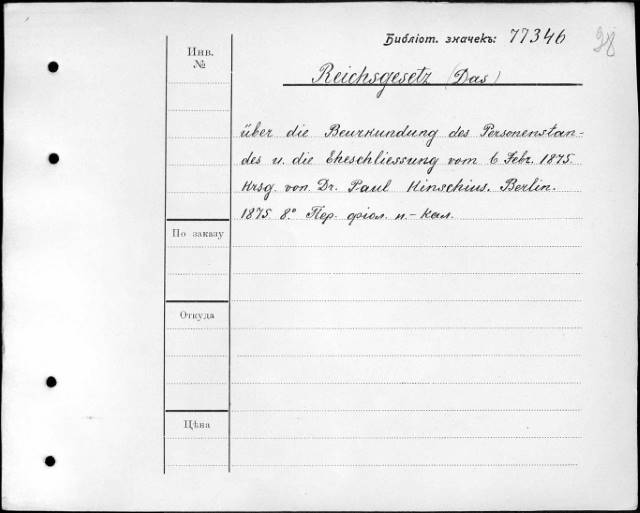 Библіот. значекъ: 77346
28
Инв.
№
Reichsgesetz (Das)
über die Beurkundung des Personenstan-
des u. die Eheschliessung vom 6 Febr. 1875.
Hrsg. von. Dr. Paul Hinschius. Berlin.
1875. 8.° Пер. фіол. п.- кал.
По заказу
Откуда
Цѣна